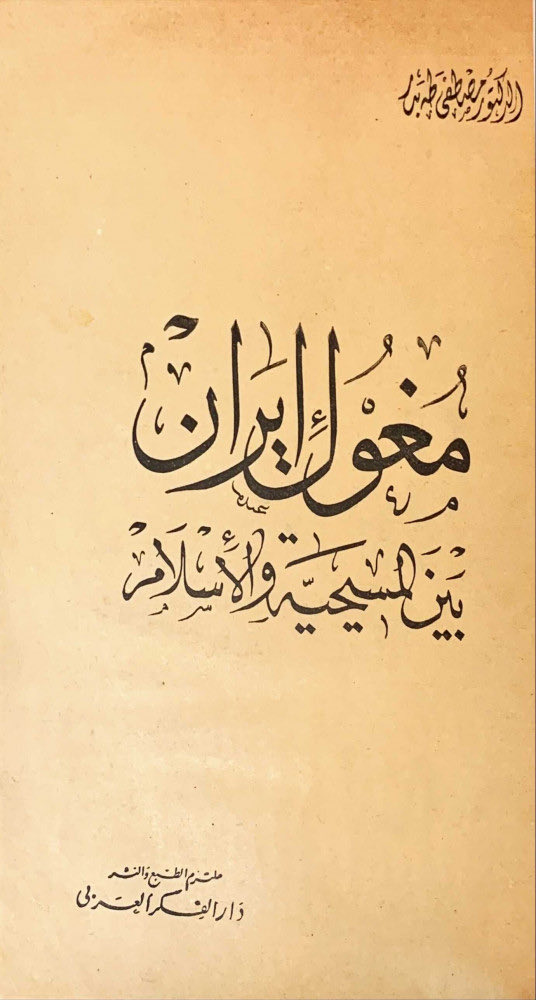 الدكتور مصطفى طه بدر
مغول إيران
بين المسيحية والأسلام
ملتزم الطبع والنشر
دار الفكر العربي